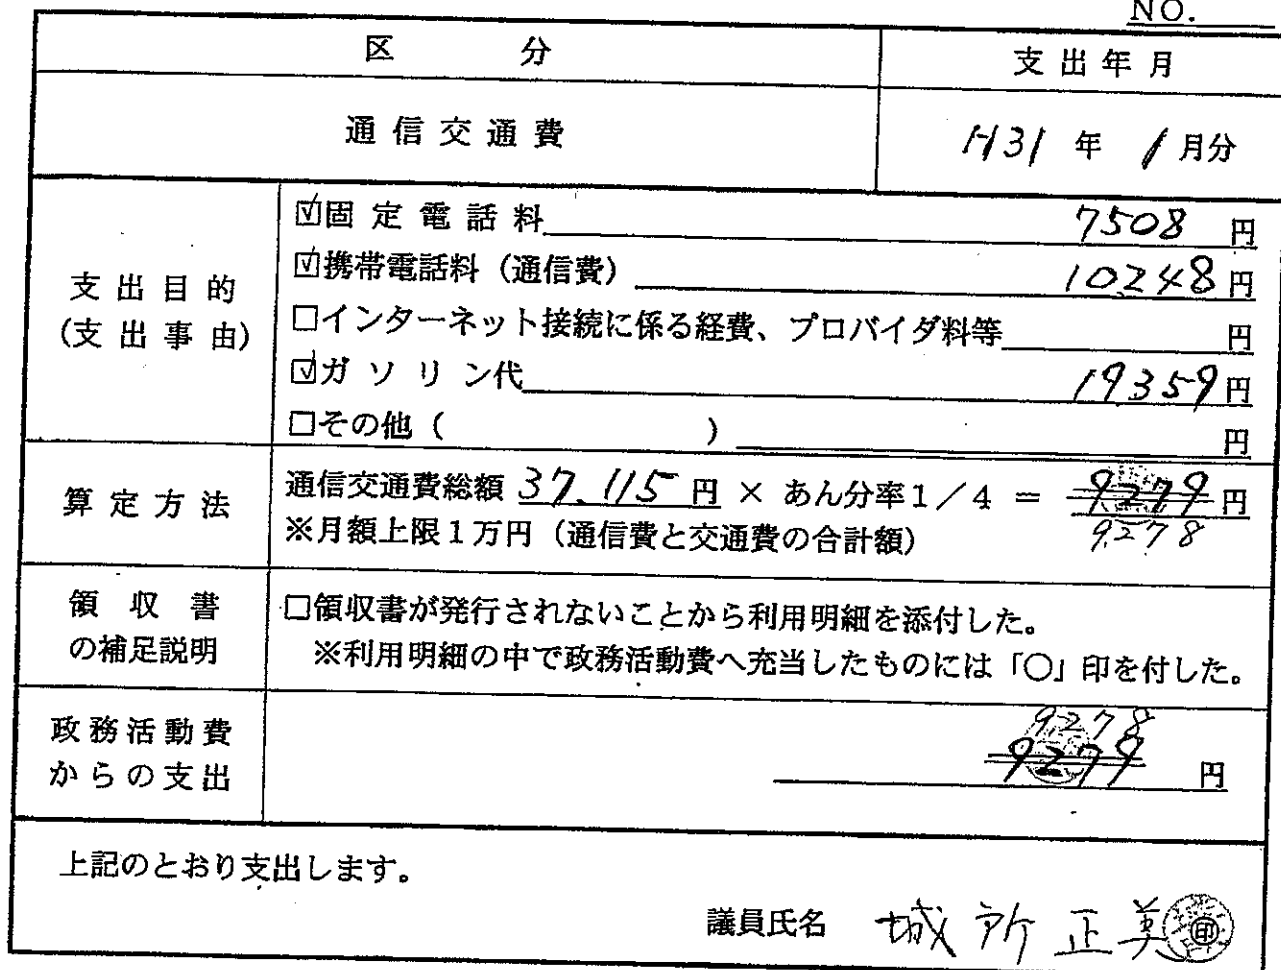 NO.
区 分 支出年月
通信交通費 H31 年 1 月分
支出目的
(支出事由)
☑固定電話料 7508 円
☑携帯電話料(通信費) 10248 円
□インターネット接続に係る経費、プロバイダ料等 円
☑ガソリン代 19359 円
□その他( ) 円
算定方法
通信交通費総額 37.115 円 × あん分率1/4 = 9279 円
※月額上限1万円(通信費と交通費の合計額) 9278
領収書
の補足説明
□領収書が発行されないことから利用明細を添付した。
※利用明細の中で政務活動費へ充当したものには「○」印を付した。
政務活動費
からの支出
9278
9279 円
上記のとおり支出します。
議員氏名 城所正美 印